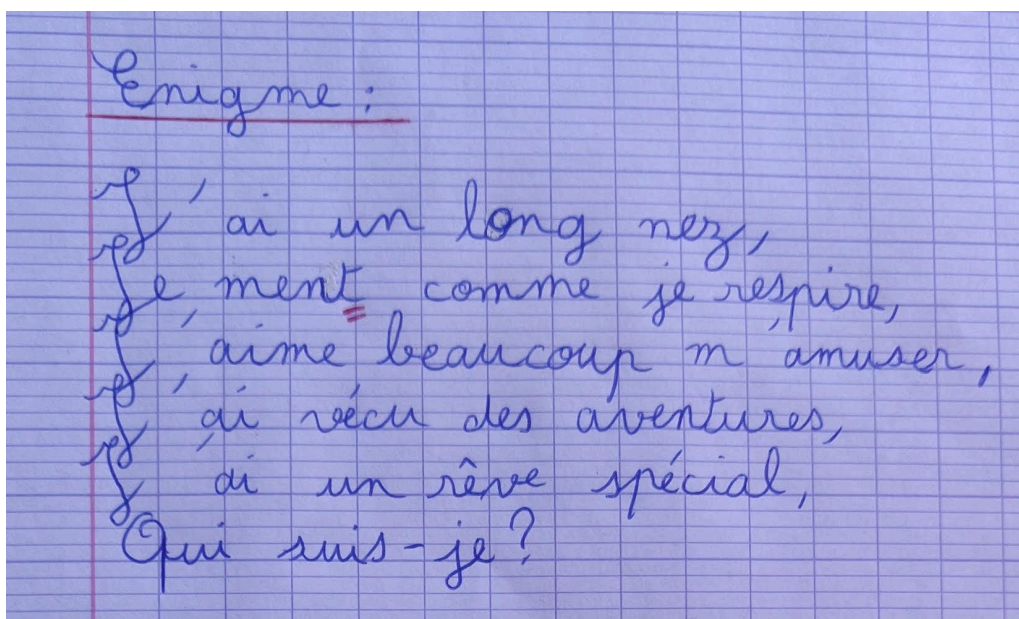 Enigme :
J'ai un long nez,
Je ment comme je respire,
J'aime beaucoup m'amuser,
J'ai vécu des aventures,
J'ai un rêve spécial,
Qui suis-je ?